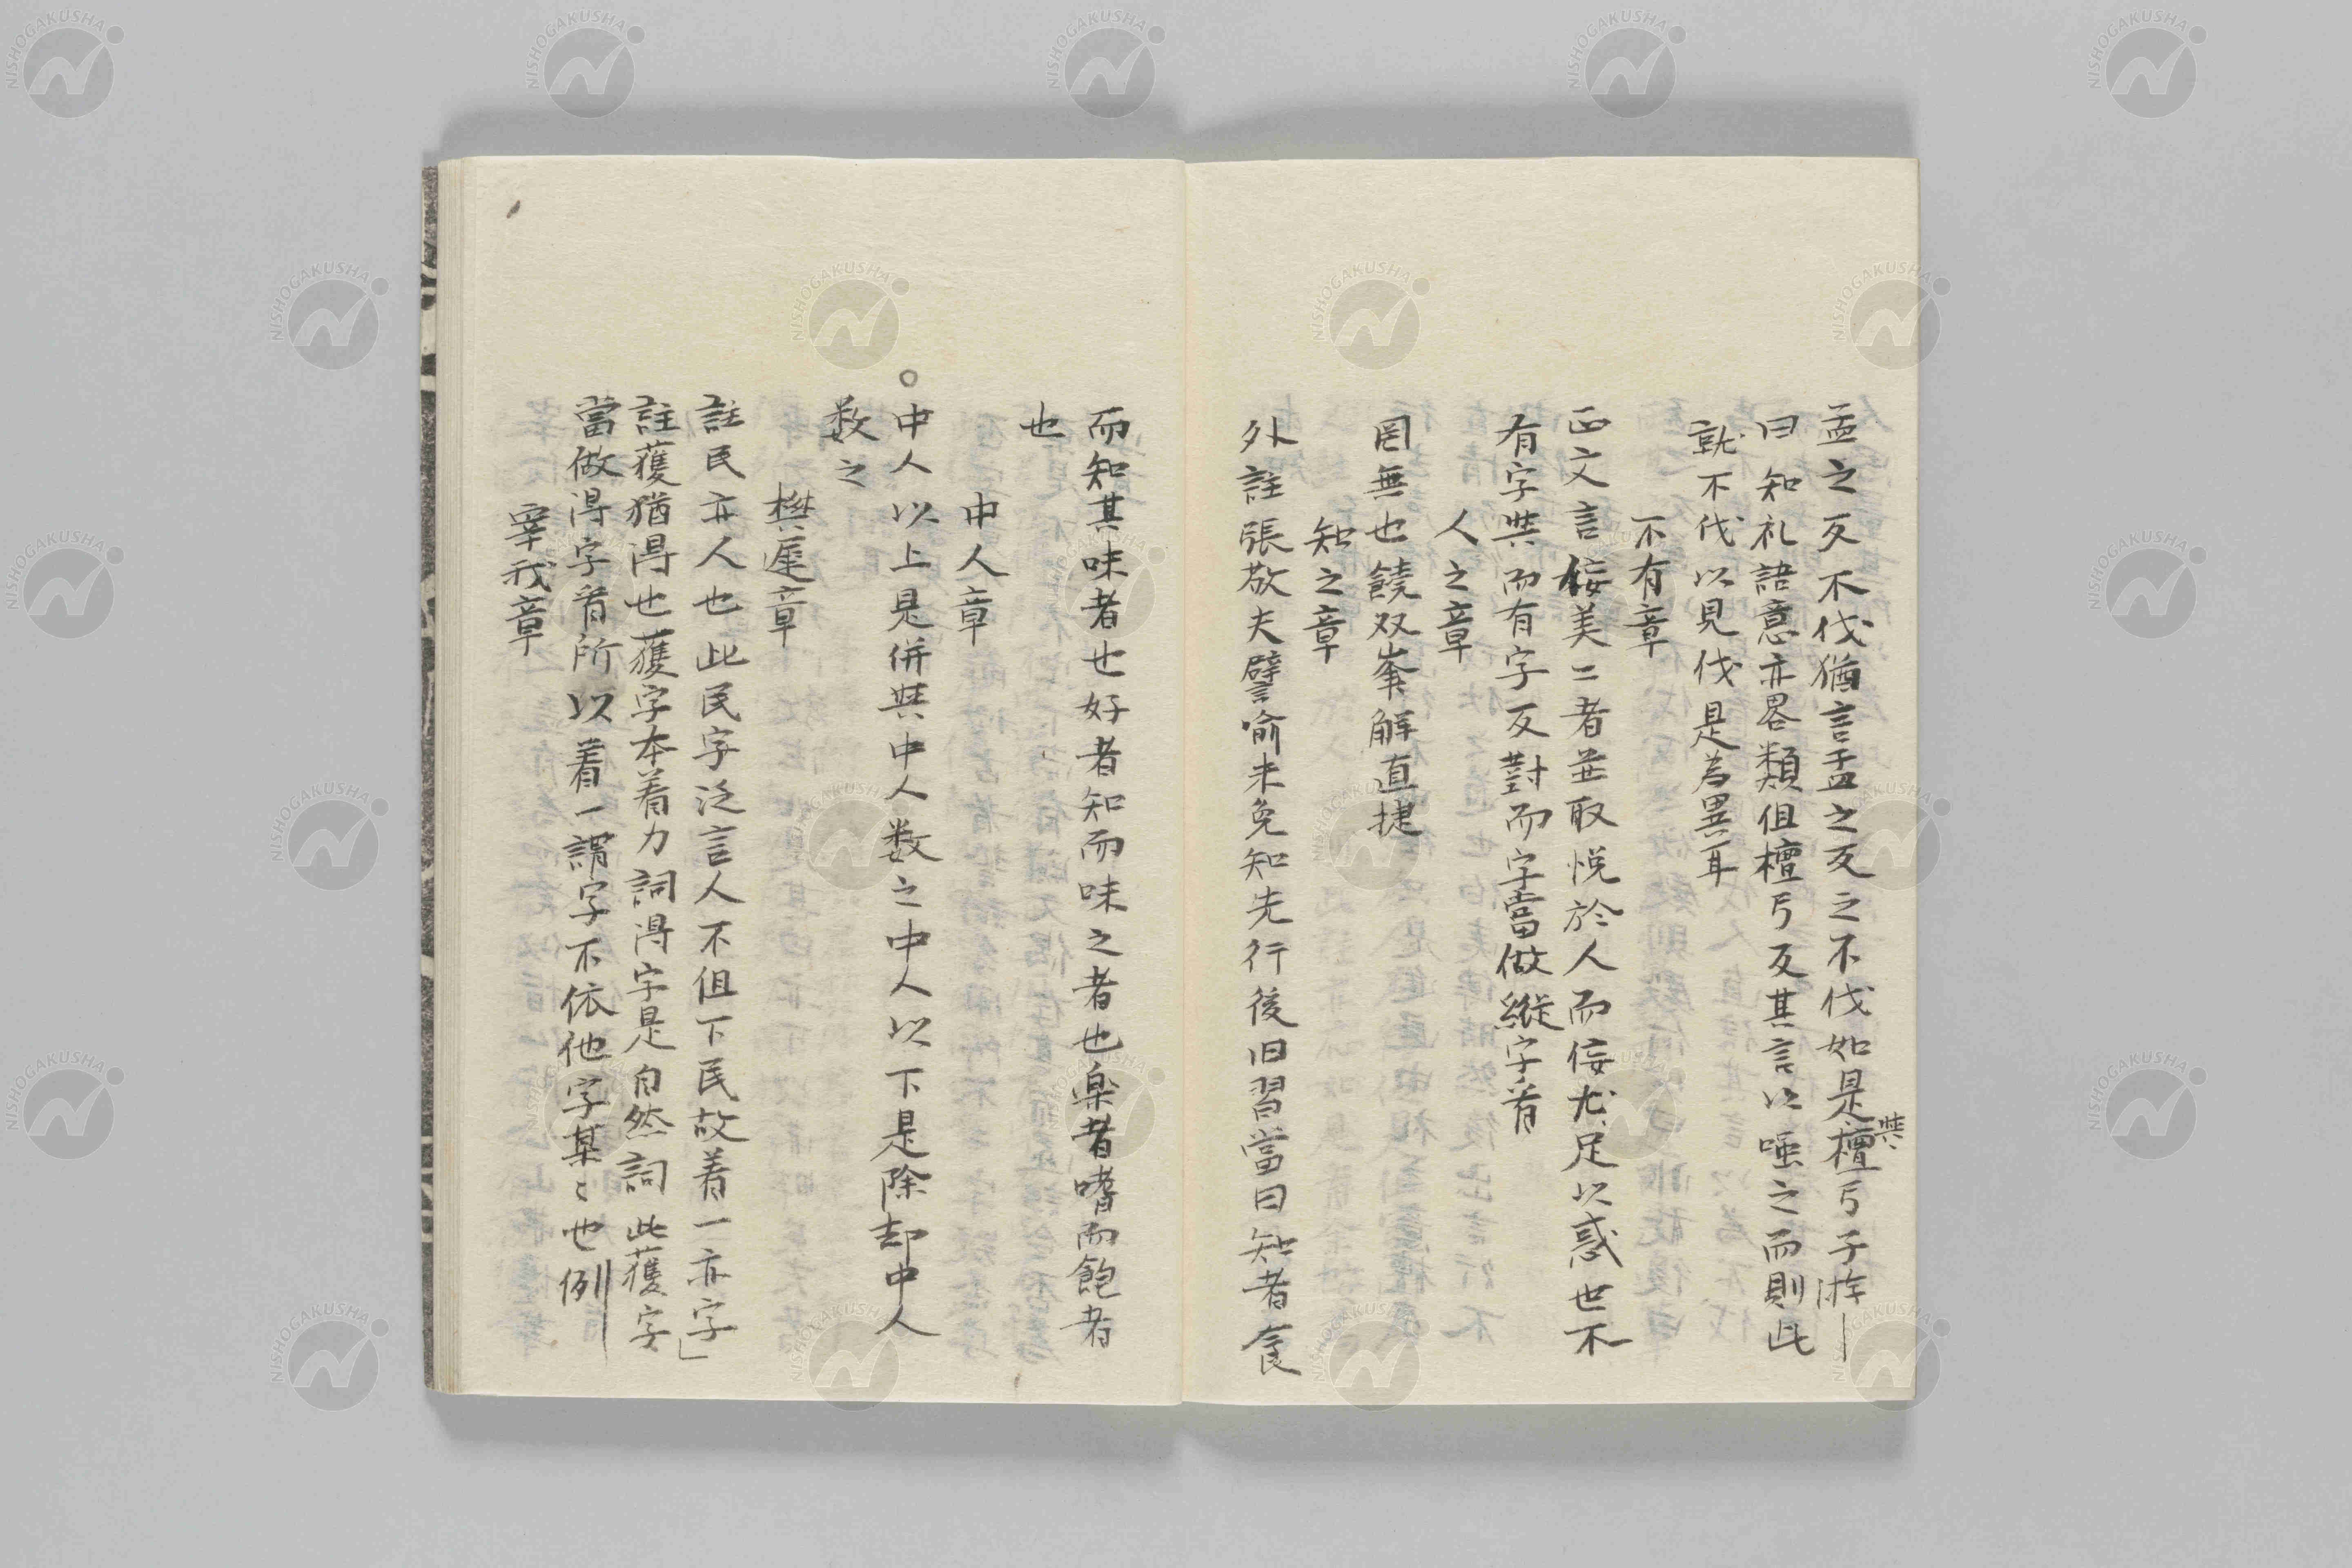 孟之反不伐猶言孟之反之不伐如是與檀弓子游
曰知礼語意亦畧類但檀弓反其言以唾之而則此
就不伐以見伐是為異耳
不有章
正文言佞美二者並取悦於人而佞尤足以惑世不
有字與而有字反對而字當做縱字看
人之章
罔無也饒双峯解直捷
知之章
外註張敬夫譬喻未免知先行後旧習當曰知者食
而知其味者也好者知而味之者也楽者嗜而飽者
也
中人章
○中人以上是併與中人数之中人以下是除却中人
数之
樊遲章
註民亦人也此民字泛言人不但下民故着一亦字」
註獲猶得也獲字本着力詞得字是自然詞此獲字
當做得字看所以着一謂字不依他字某〻也例
宰我章
NISHOGAKUSHA